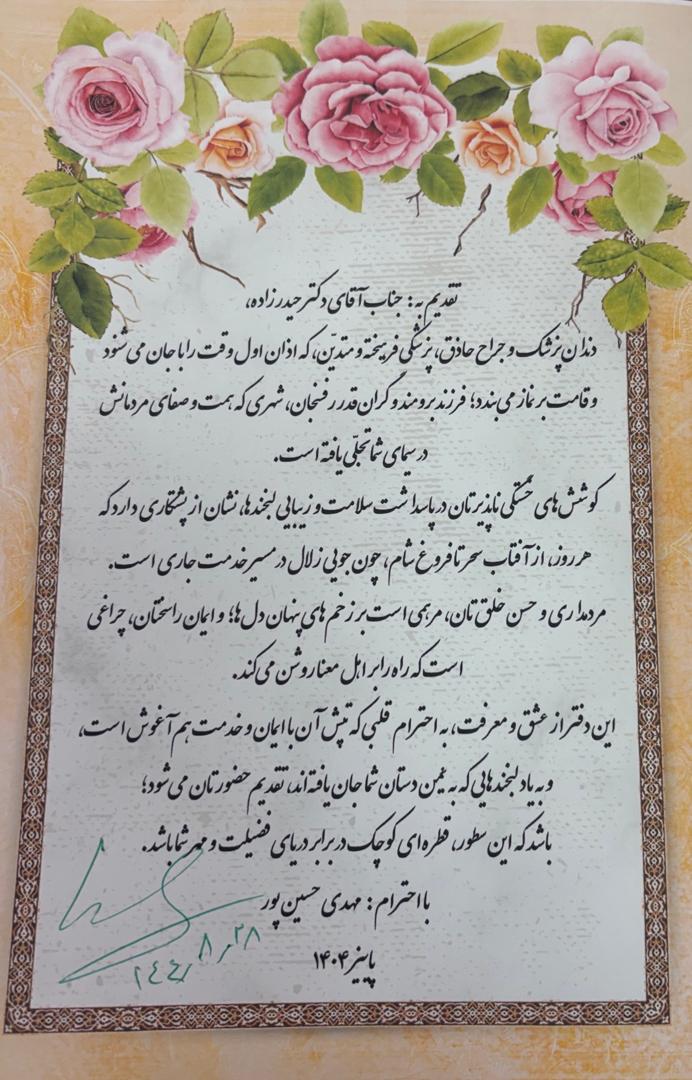 تقدیم به: جناب آقای دکتر حیدرزاده،
دندان پزشک و جراح حاذق، پزشکی فریخته و متدیّن، که اذان اول وقت را با جان می شنود
و قامت بر نماز می بندد؛ فرزند برومند و گران قدر رفنجان، شهری که همت و صفای مردمانش
در سیمای شما تجلّی یافته است.
کوشش های خستگی ناپذیرتان در پاسداشت سلامت و زیبایی لبخندها، نشان از پشتکاری دارد که
هر روز، از آفتاب سحر تا فروغ شام، چون جویی زلال در مسیر خدمت جاری است.
مردمداری و حسن خلق تان، مرهمی است بر زخم های پنهان دل ها؛ و ایمان راسختان، چراغی
است که راه را بر اهل معنا روشن می کند.
این دفتر از عشق و معرفت، به احترام قلبی که تپش آن با ایمان و خدمت هم آغوش است،
و به یاد لبخندهایی که به یمن دستان شما جان یافته اند، تقدیم حضورتان می شود؛
باشد که این سطور، قطره ای کوچک در برابر دریای فضیلت و مهر شما باشد.
با احترام: مهدی حسین پور
۲۸ / ۸ / ۱۴۰۴
پاییز ۱۴۰۴